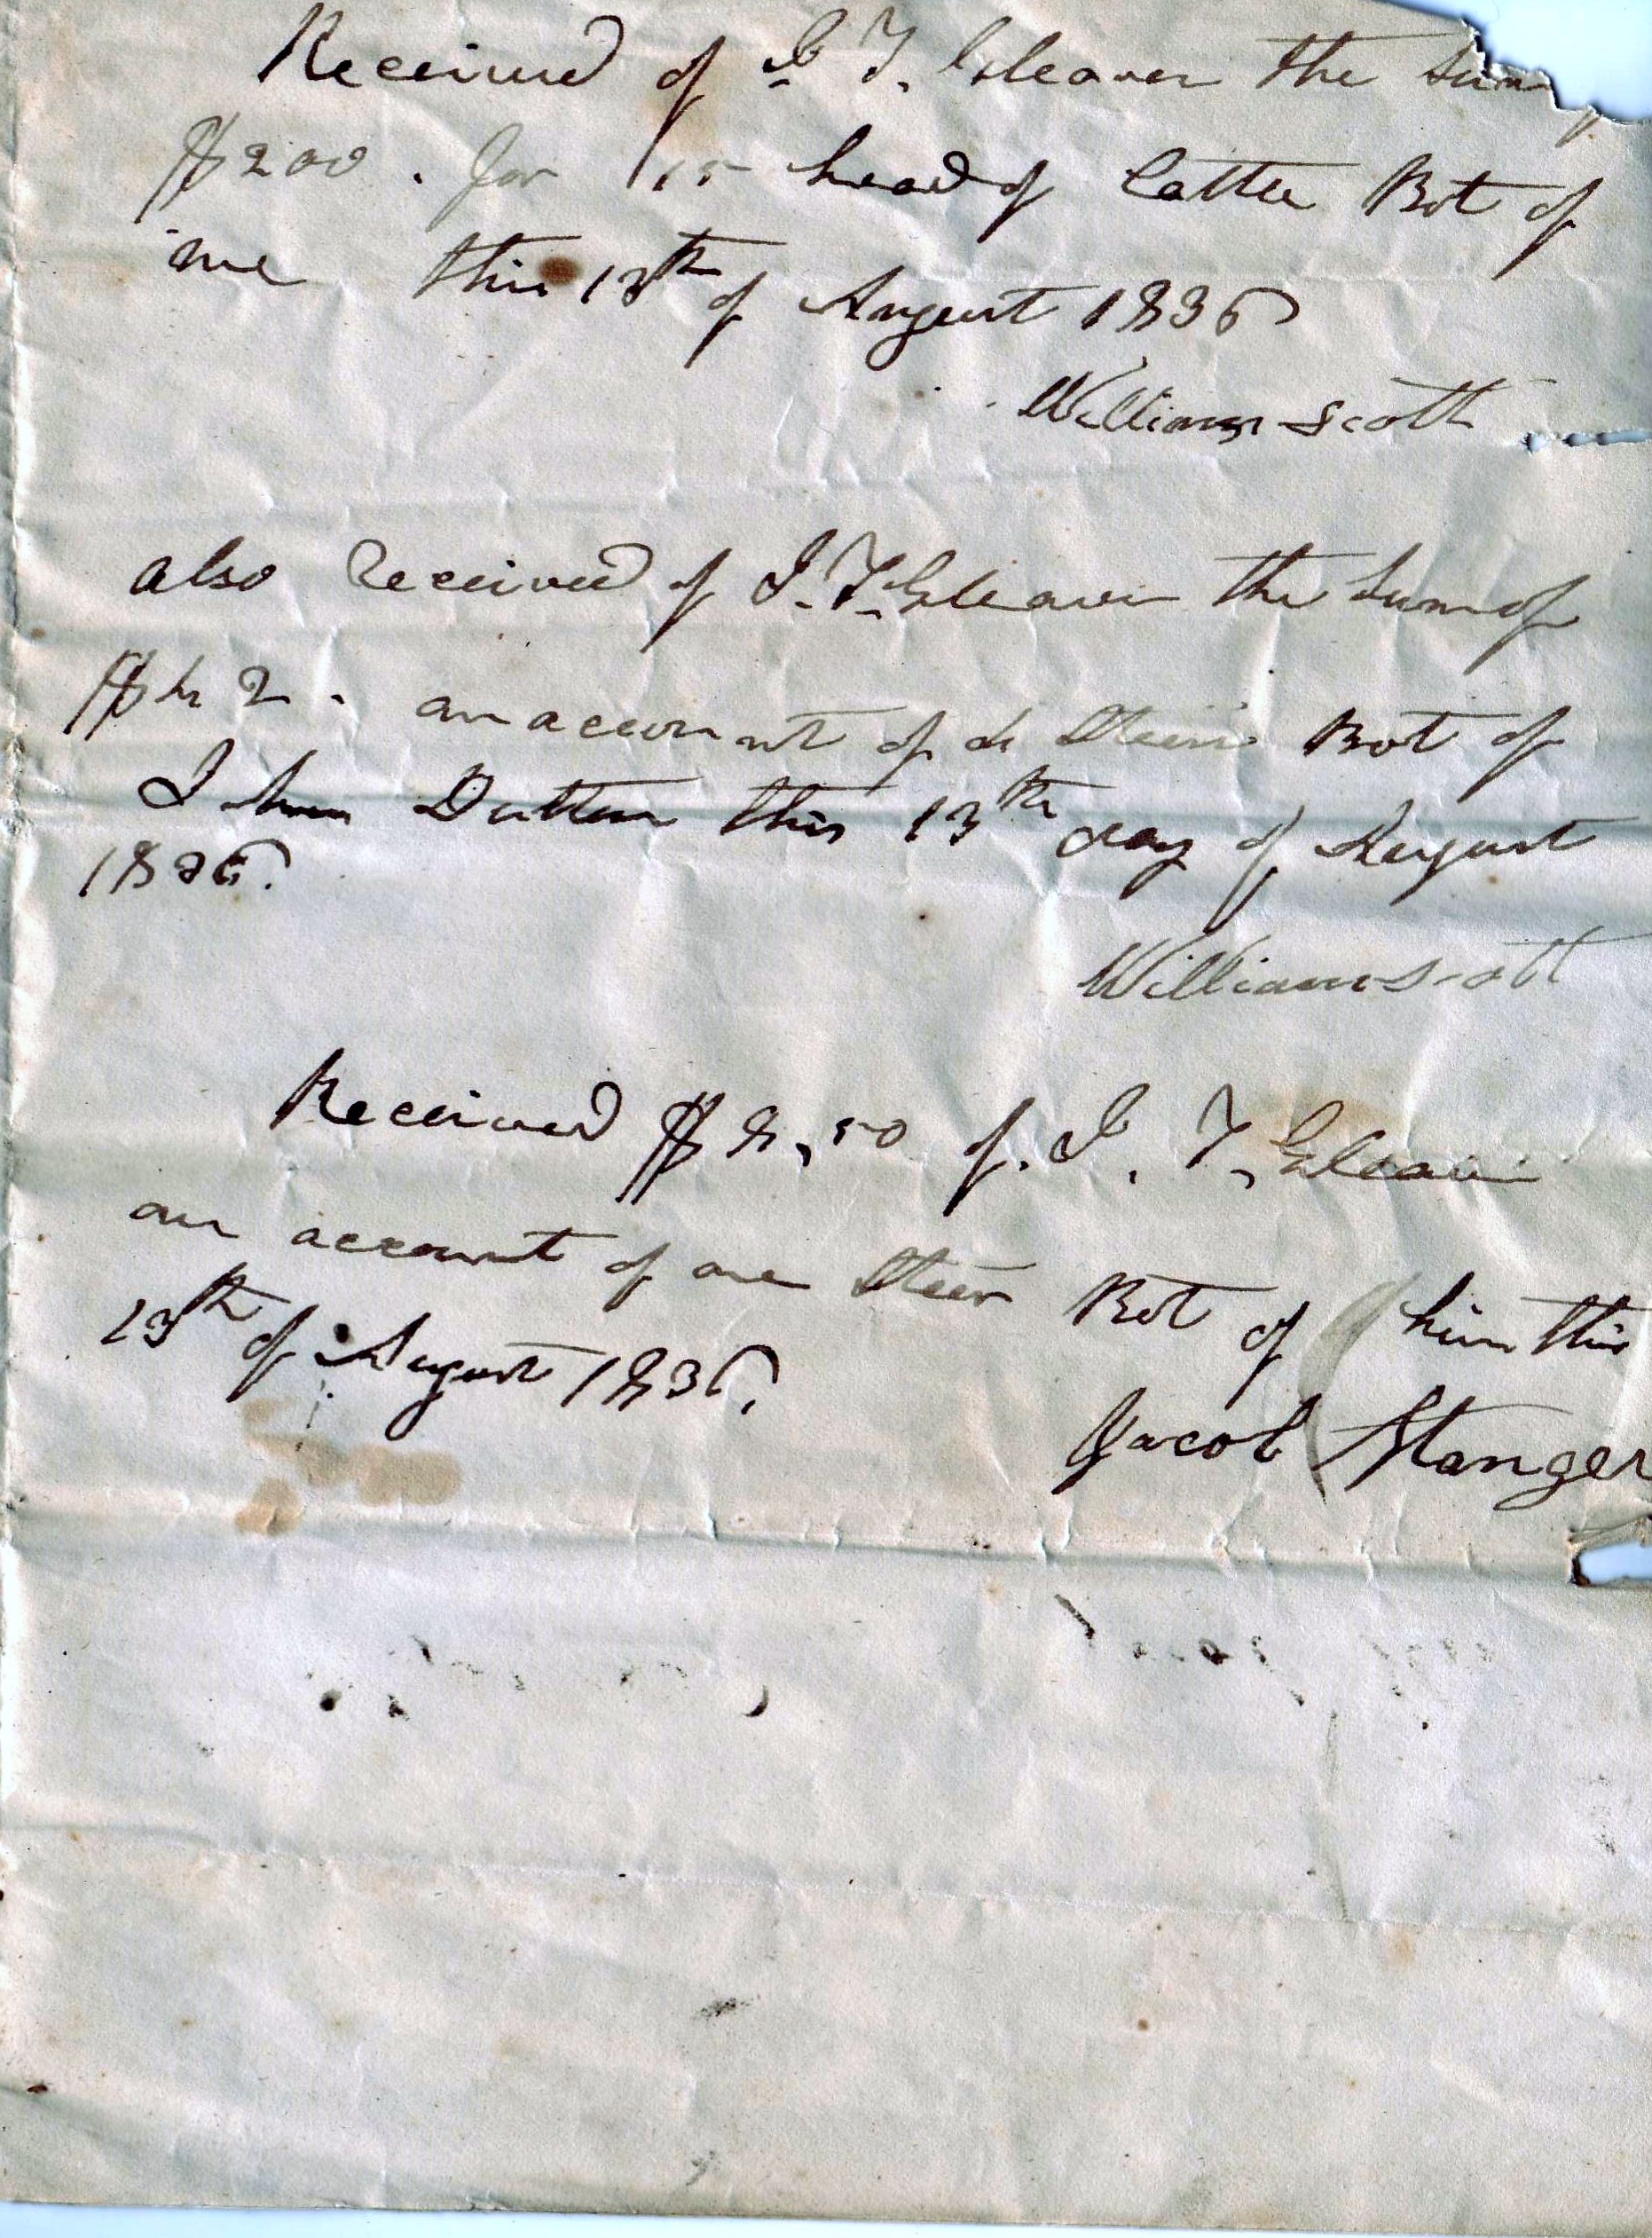 Received of I. T. Gleaver the Sum
$200. for 15 head of Cattle Bot of
me this 13th of August 1836
William Scott
also Received of I. T. Gleaver the Sum of
$42. on account of 4 Steers Bot of
John Dutton this 13th day of August
1836.
William Scott
Received $8,50 of I. T. Gleaver
on account of one Steer Bot of him this
13th of August 1836.
Jacob Stanger